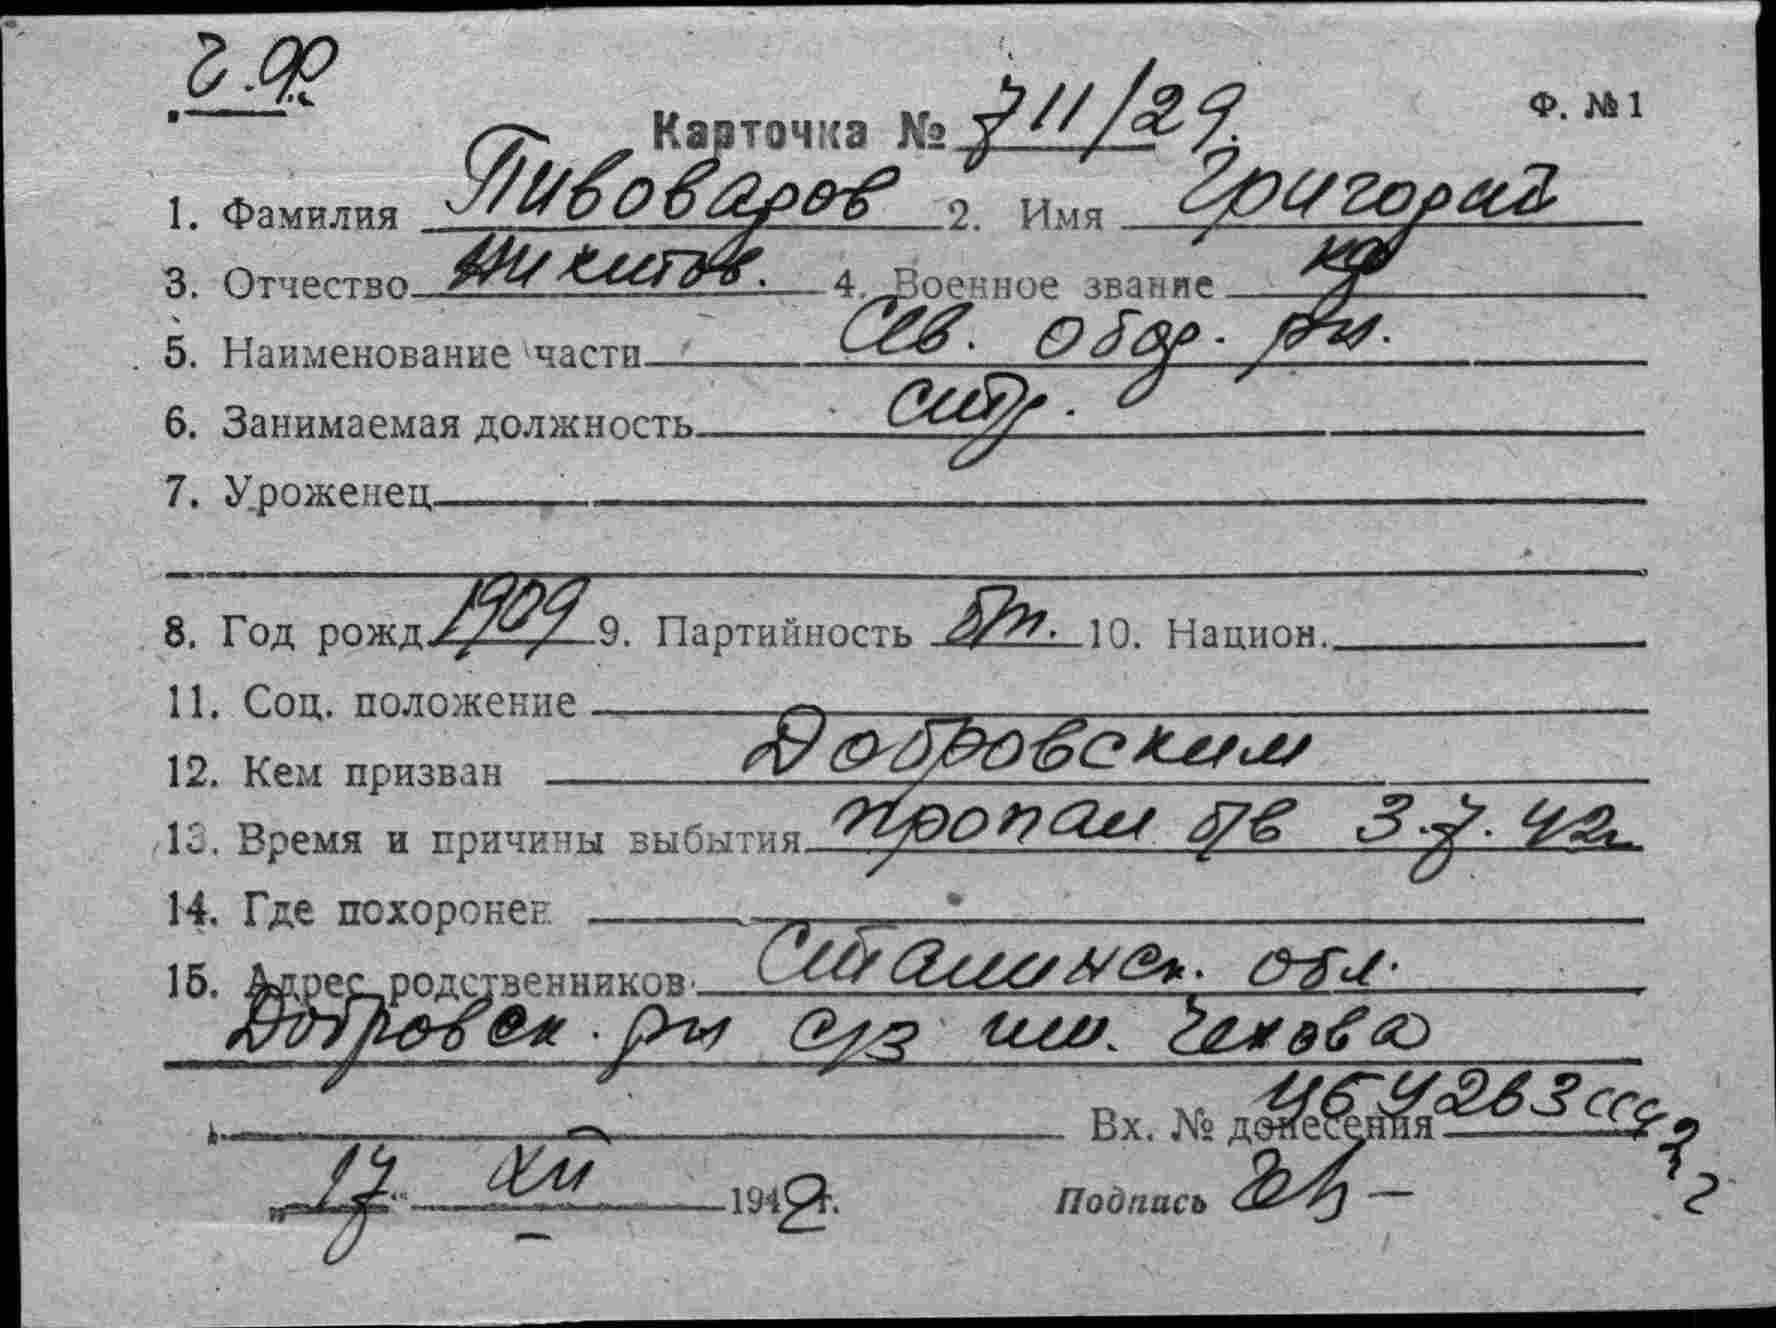 Ч.Ф.
Карточка № 711/29. Ф. №1
1. Фамилия Пивоваров 2. Имя Григорий
3. Отчество Никитов. 4. Военное звание кр
5. Наименование части Сев. обор. рн.
6. Занимаемая должность стр.
7. Уроженец
8. Год рожд 1909 9. Партийность б/п. 10. Национ.
11. Соц. положение
12. Кем призван Добровским
13. Время и причины выбытия пропал б/в 3.7.42г
14. Где похоронен
15. Адрес родственников Сталинск. обл.
Добровск. рн с/з им. Чехова
Вх. № донесения
„17“ XII 1942г. Подпись